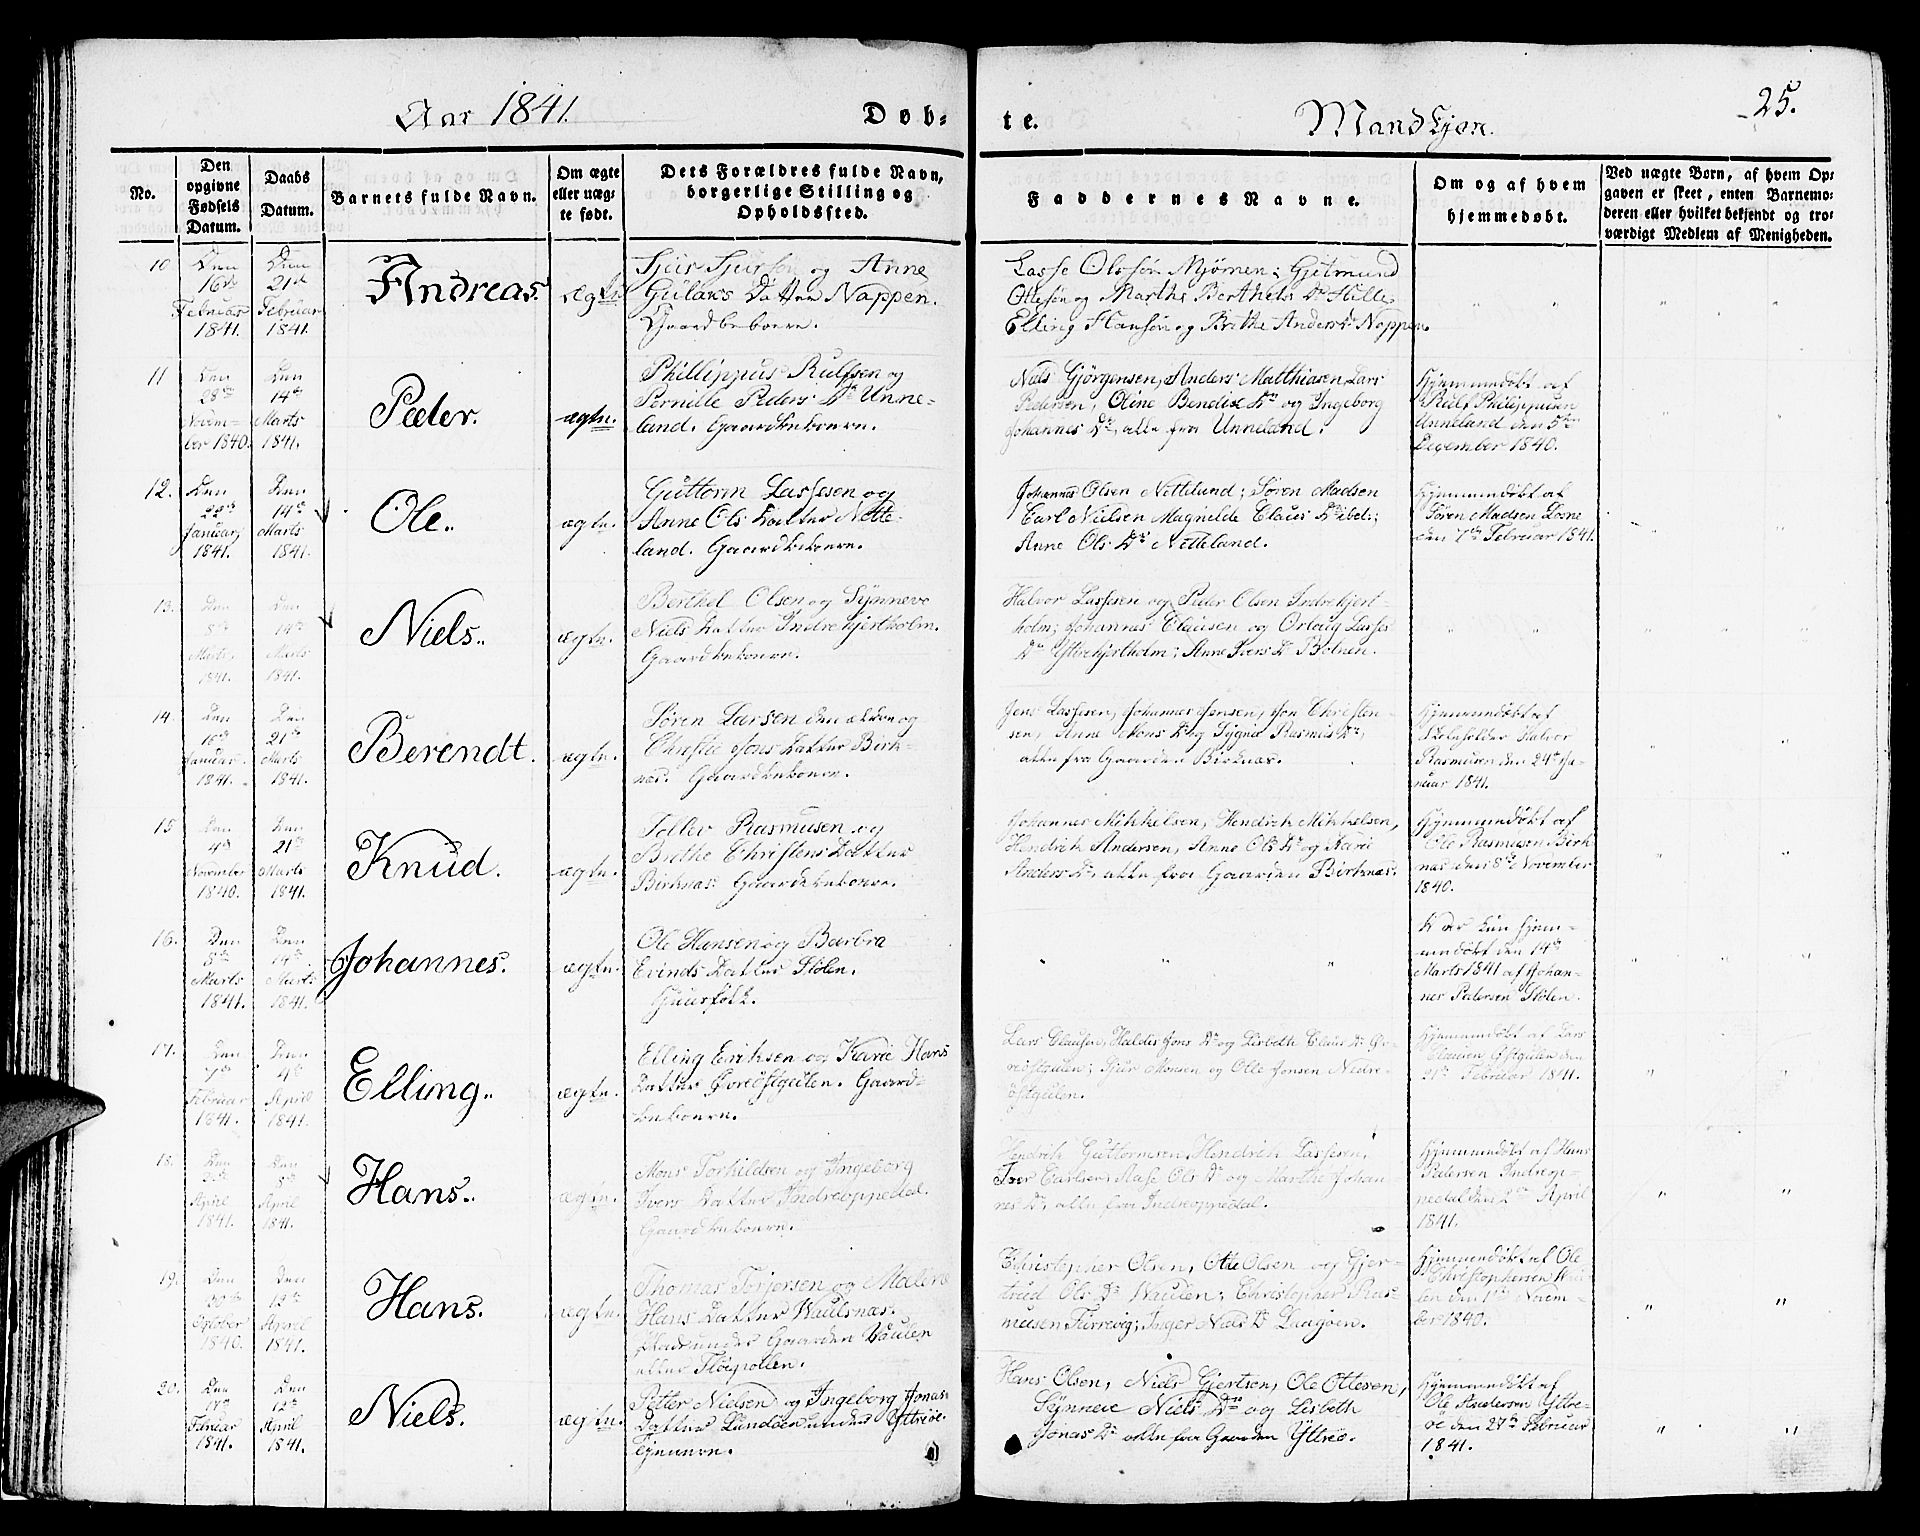 Aar 1841.
Døb-
te.
Mandkjøn.
25.
No.
Den
opgivne
Fødsels
Datum.
Daabs
Datum.
Barnets fulde Navn.
Om ægte
eller uæg-
te født.
Dets Forældres fulde Navn,
borgerlige Stilling og
Opholdssted.
Faddernes Navne.
Om og af hvem
hjemmedøbt.
Ved uægte Børn, af hvem Op-
gaven er skeet, enten Barnemo-
deren eller hvilket bekjendt og tro-
værdigt Medlem af Menigheden.
10
Den
16de
Februar
1841.
Den
21de
Februar
1841.
Andreas.
ægte
Sjur Sjursøn og Anne
Gulaks Datter Nappen.
Gaardbeboere.
Lasse Olssøn Mjømen; Gjetmund
Ottesøn og Marthe Berthels Dr Hille,
Elling Hansøn og Brithe Anders Dr Nappen.
11
Den
28de
Novem-
ber 1840.
Den
14de
Marts
1841.
Peder.
ægte.
Phillippus Rulfsen og
Pernille Peders Dr Unne-
land. Gaardbeboere.
Niels Gjörgensen, Anders Matthiasen, Lars
Pedersen, Oline Bendix Dr og Ingeborg
Johannes Dr, alle fra Unneland.
Hjemmedøbt af
Rulf Philippusen
Unneland den 5te
December 1840.
12.
Den
22de
Januar,
1841.
Den
14de
Marts
1841.
Ole.
ægte.
Guttorm Lassesen og
Anne Ols Datter Nette-
land. Gaardbeboere.
Johannes Olsen Netteland; Søren Madsen
Carl Nielsen Magnilde Claus Dr
Anne Ols Dr Netteland.
Hjemmedøbt af
Søren Madsen
den 7de Februar 1841.
13.
Den
8de
Marts,
1841.
Den
14de
Marts
1841.
Niels.
ægte.
Berthel Olsen og Synneve
Niels Datter Indrehjertholm.
Gaardbeboere.
Halvor Lassesen og Peder Olsen Indrehjert-
holm; Johannes Clausen og Orlaug Lasses
Dr Ytrehjertholm; Anne Ivers Dr Botnen.
14.
Den
16de
Januar.
1841.
Den
21de
Marts
1841.
Berendt.
ægte.
Søren Larsen den ældre og
Christie Jons Datter Birk-
næs. Gaardbeboere.
Jens Lassesen, Johannes Jensen, Jon Christen-
sen, Anne Mons Dr og Sygne Rasmus Dr,
alle fra Gaarden Birknæs.
Hjemmedøbt af
Skoleholder Halvor
Rasmusen den 24de Ja-
nuar 1841.
15
Den
4de
November
1840.
Den
21de
Marts
1841.
Knud.
ægte.
Tollev Rasmusen og
Brithe Christens Datter
Birknæs. Gaardbeboere.
Johannes Mikkelsen, Hendrik Mikkelsen,
Hendrik Andersen, Anne Ols Dr og Kari
Anders Dr, alle fra Gaarden Birknæs.
Hjemmedøbt af
Ole Rasmusen Birk
næs den 8de November
1840.
16.
Den
5te
Marts
1841.
Den
14de
Marts
1841.
Johannes.
ægte.
Ole Hansen og Barbra
Evinds Datter Stölen.
Huusfolk.
Er kun hjem-
medøbt den 14de
Marts 1841 af Johan-
nes Pedersen Stölen.
17.
Den
7de
Februar
1841.
Den
4de
April
1841.
Elling.
ægte.
Elling Eriksen og Kari Hans
Datter Øvreöstgulen. Gaard-
beboere.
Lars Clausen, Haldis Jons Dr og Lisbeth Claus Dr Øv-
reöstgulen; Sjur Monsen og Olle Jonsen Nedre-
östgulen.
Hjemmedøbt af Lars
Clausen Östgulen den
21de Februar 1841.
18.
Den
2den
April
1841.
Den
8de
April
1841.
Hans.
ægte.
Mons Torkildsen og Ingeborg
Ivers Datter Indreoppedal.
Gaardbeboere.
Hendrik Guttormsen, Hendrik Lassesen,
Iver Carlsen, Aase Ols Dr og Marthe Johan-
nes Dr, alle fra Indreoppedal.
Hjemmedøbt af Hans
Pedersen Indreop-
pedal den 2den April
1841.
19.
Den
30te
October
1840.
Den
12te
April
1841.
Hans.
ægte.
Thomas Torjersen og Malene
Hans Datter Waulsnæs.
Plads under Gaarden Vaulen
eller Flöipollen.
Christopher Olsen, Otte Olsen og Gjer-
trud Ols Dr Waulen; Christopher Ras-
musen Furrevig; Inger Niels Dr Langöen.
Hjemmedøbt af Ole
Christophersen Wau-
len den 1ste Novem-
ber 1840.
20.
Den
17de
Februar
1841.
Den
12te
April
1841.
Niels.
ægte.
Petter Nielsen og Ingeborg Jonas-
Datter under Ytröe.
Hans Olsen, Niels Gjertsen, Ole Ottesen,
Synneve Niels Dr og Lisbeth
Jonas Dr alle fra Gaarden Yttröe.
Hjemmedøbt af
Ole Andersen Yttrö-
e den 27de Februar
1841.